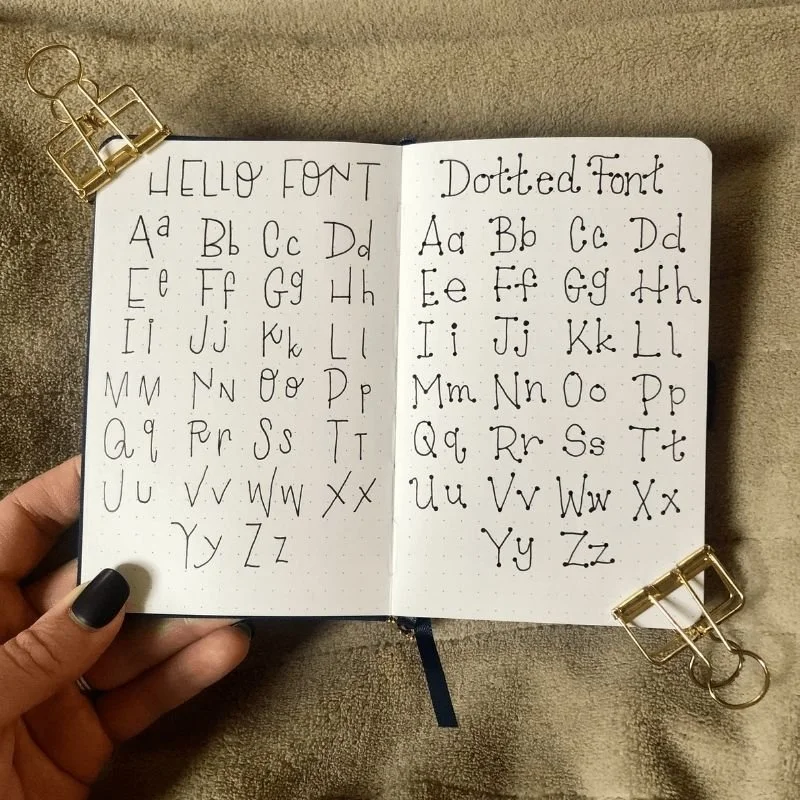 HELLO FONT
Aa Bb Cc Dd
Ee Ff Gg Hh
Ii Jj Kk Ll
MM NN Oo Pp
Qq Rr Ss TT
Uu Vv Ww Xx
Yy Zz
Dotted Font
Aa Bb Cc Dd
Ee Ff Gg Hh
Ii Jj Kk Ll
Mm Nn Oo Pp
Qq Rr Ss Tt
Uu Vv Ww Xx
Yy Zz